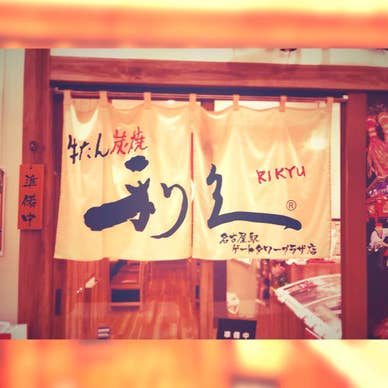 牛たん炭焼
利久
RIKYU
®
名古屋駅
ゲートタワープラザ店
準備中
準備中